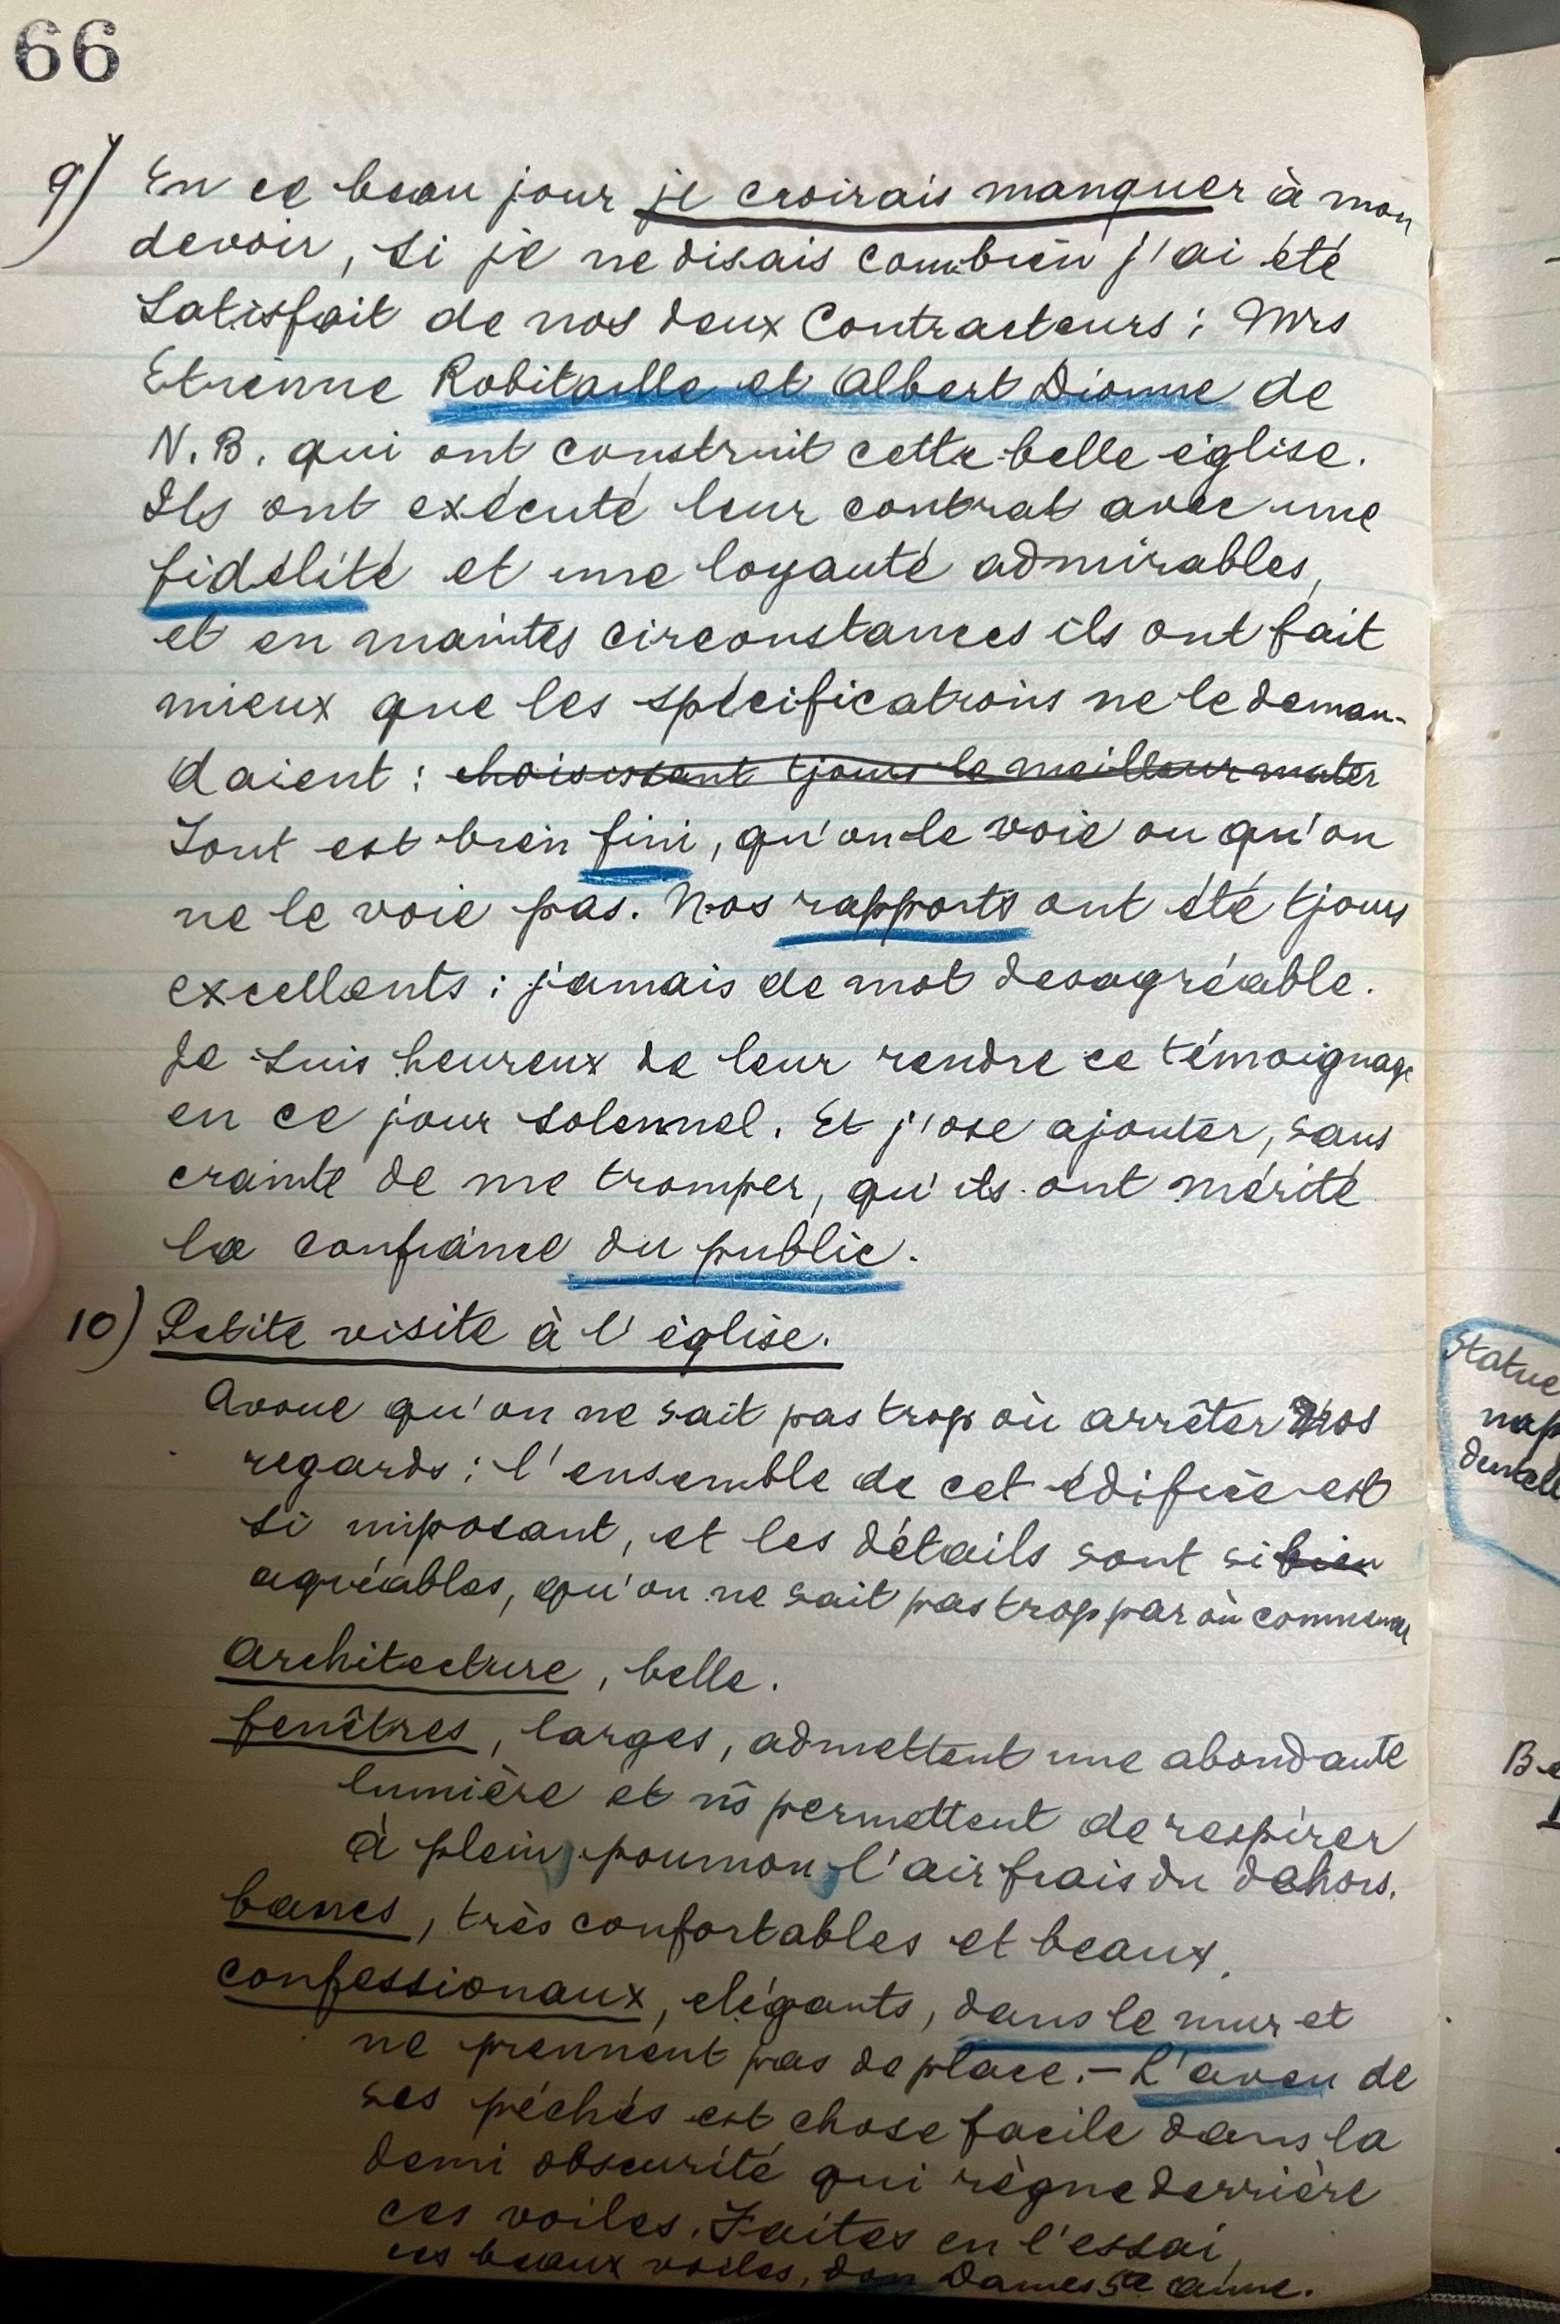 66
9) En ce beau jour je croirais manquer à mon
devoir, si je ne disais combien j'ai été
satisfait de nos deux Contracteurs : Mrs
Etienne Robitaille et Albert Dionne de
N.B. qui ont construit cette belle église.
Ils ont exécuté leur contrat avec une
fidélité et une loyauté admirables,
et en maintes circonstances ils ont fait
mieux que les spécifications ne le deman-
daient : choisissant tjours le meilleur mater
Tout est bien fini, qu'on le voie ou qu'on
ne le voie pas. Nos rapports ont été tjours
excellents : jamais de mot desagréable.
Je suis heureux de leur rendre ce témoignage
en ce jour solennel. Et j'ose ajouter, sans
crainte de me tromper, qu'ils ont mérité
la confiance du public.
10) Petite visite à l'église.
Avoue qu'on ne sait pas trop où arrêter nos
regards : l'ensemble de cet édifice est
si imposant, et les détails sont si bien
agréables, qu'on ne sait pas trop par où commencer
Architecture, belle.
fenêtres, larges, admettent une abondante
lumière et ns permettent de respirer
à plein poumon l'air frais du dehors.
bancs, très confortables et beaux.
confessionaux, elégants, dans le mur et
ne prennent pas de place. – L'aveu de
ses péchés est chose facile dans la
demi obscurité qui règne derrière
ces voiles. Faites en l'essai,
ces beaux voiles, don Dames Se Anne.
Statue
nap
dentell
Be